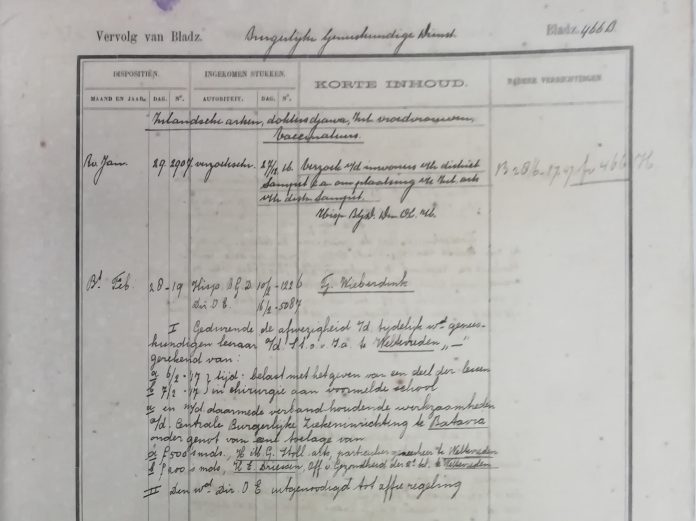 Vervolg van Bladz. Burgerlijke Geneeskundige Dienst Bladz. 466B.
DISPOSITIËN. INGEKOMEN STUKKEN. KORTE INHOUD. NADERE VERRICHTINGEN
MAAND EN JAAR. DAG. No. AUTORITEIT. DAG. No.
Inlandsche artsen, dokters djawa, Inl. vroedvrouwen,
Vaccinateurs.
Jan. 29 2907 verzoekschr. 27/12 16. Verzoek v/d inwoners v/h district
Sampit om plaatsing v/e Inl. arts
v/h distr. Sampit.
Feb. 28-19 Hlnsp. B G D 10/2-1226 G. Wieberdink
Dir. O E. 16/2-5087
I Gedurende de afwezigheid v/d. tijdelijk wd genees-
kundigen leeraar a/d. te Weltevreden „—"
gerekend van:
a 6/2-17 } tijd. belast met het geven van een deel der lessen
b 7/2-17 } in chirurgie aan voormelde school
en m/d daarmede verband houdende werkzaamheden
a/d. Centrale Burgerlijke Ziekeninrichting te Batavia
onder genot van eene toelage van
a f 500 's mds., H. M. G. Stoll. arts, particulier geneesheer te Weltevreden
b f 200 's mds, Driessen, off v. Gezondheid der 2e kl. te Weltevreden
II Den wd Dir. O E uitgenoodigd tot affre regeling